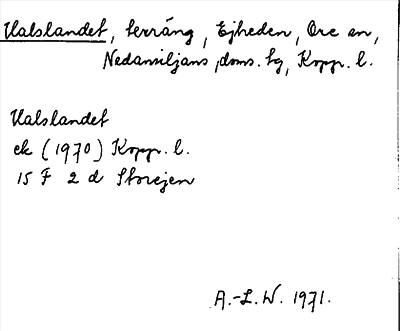 Valslandet, terräng, Ejheden, Ore sn,
Nedansiljans doms. tg, Kopp. l.
Valslandet
ek (1970) Kopp. l.
15 F 2 d Storejen
A.-L.W. 1971.